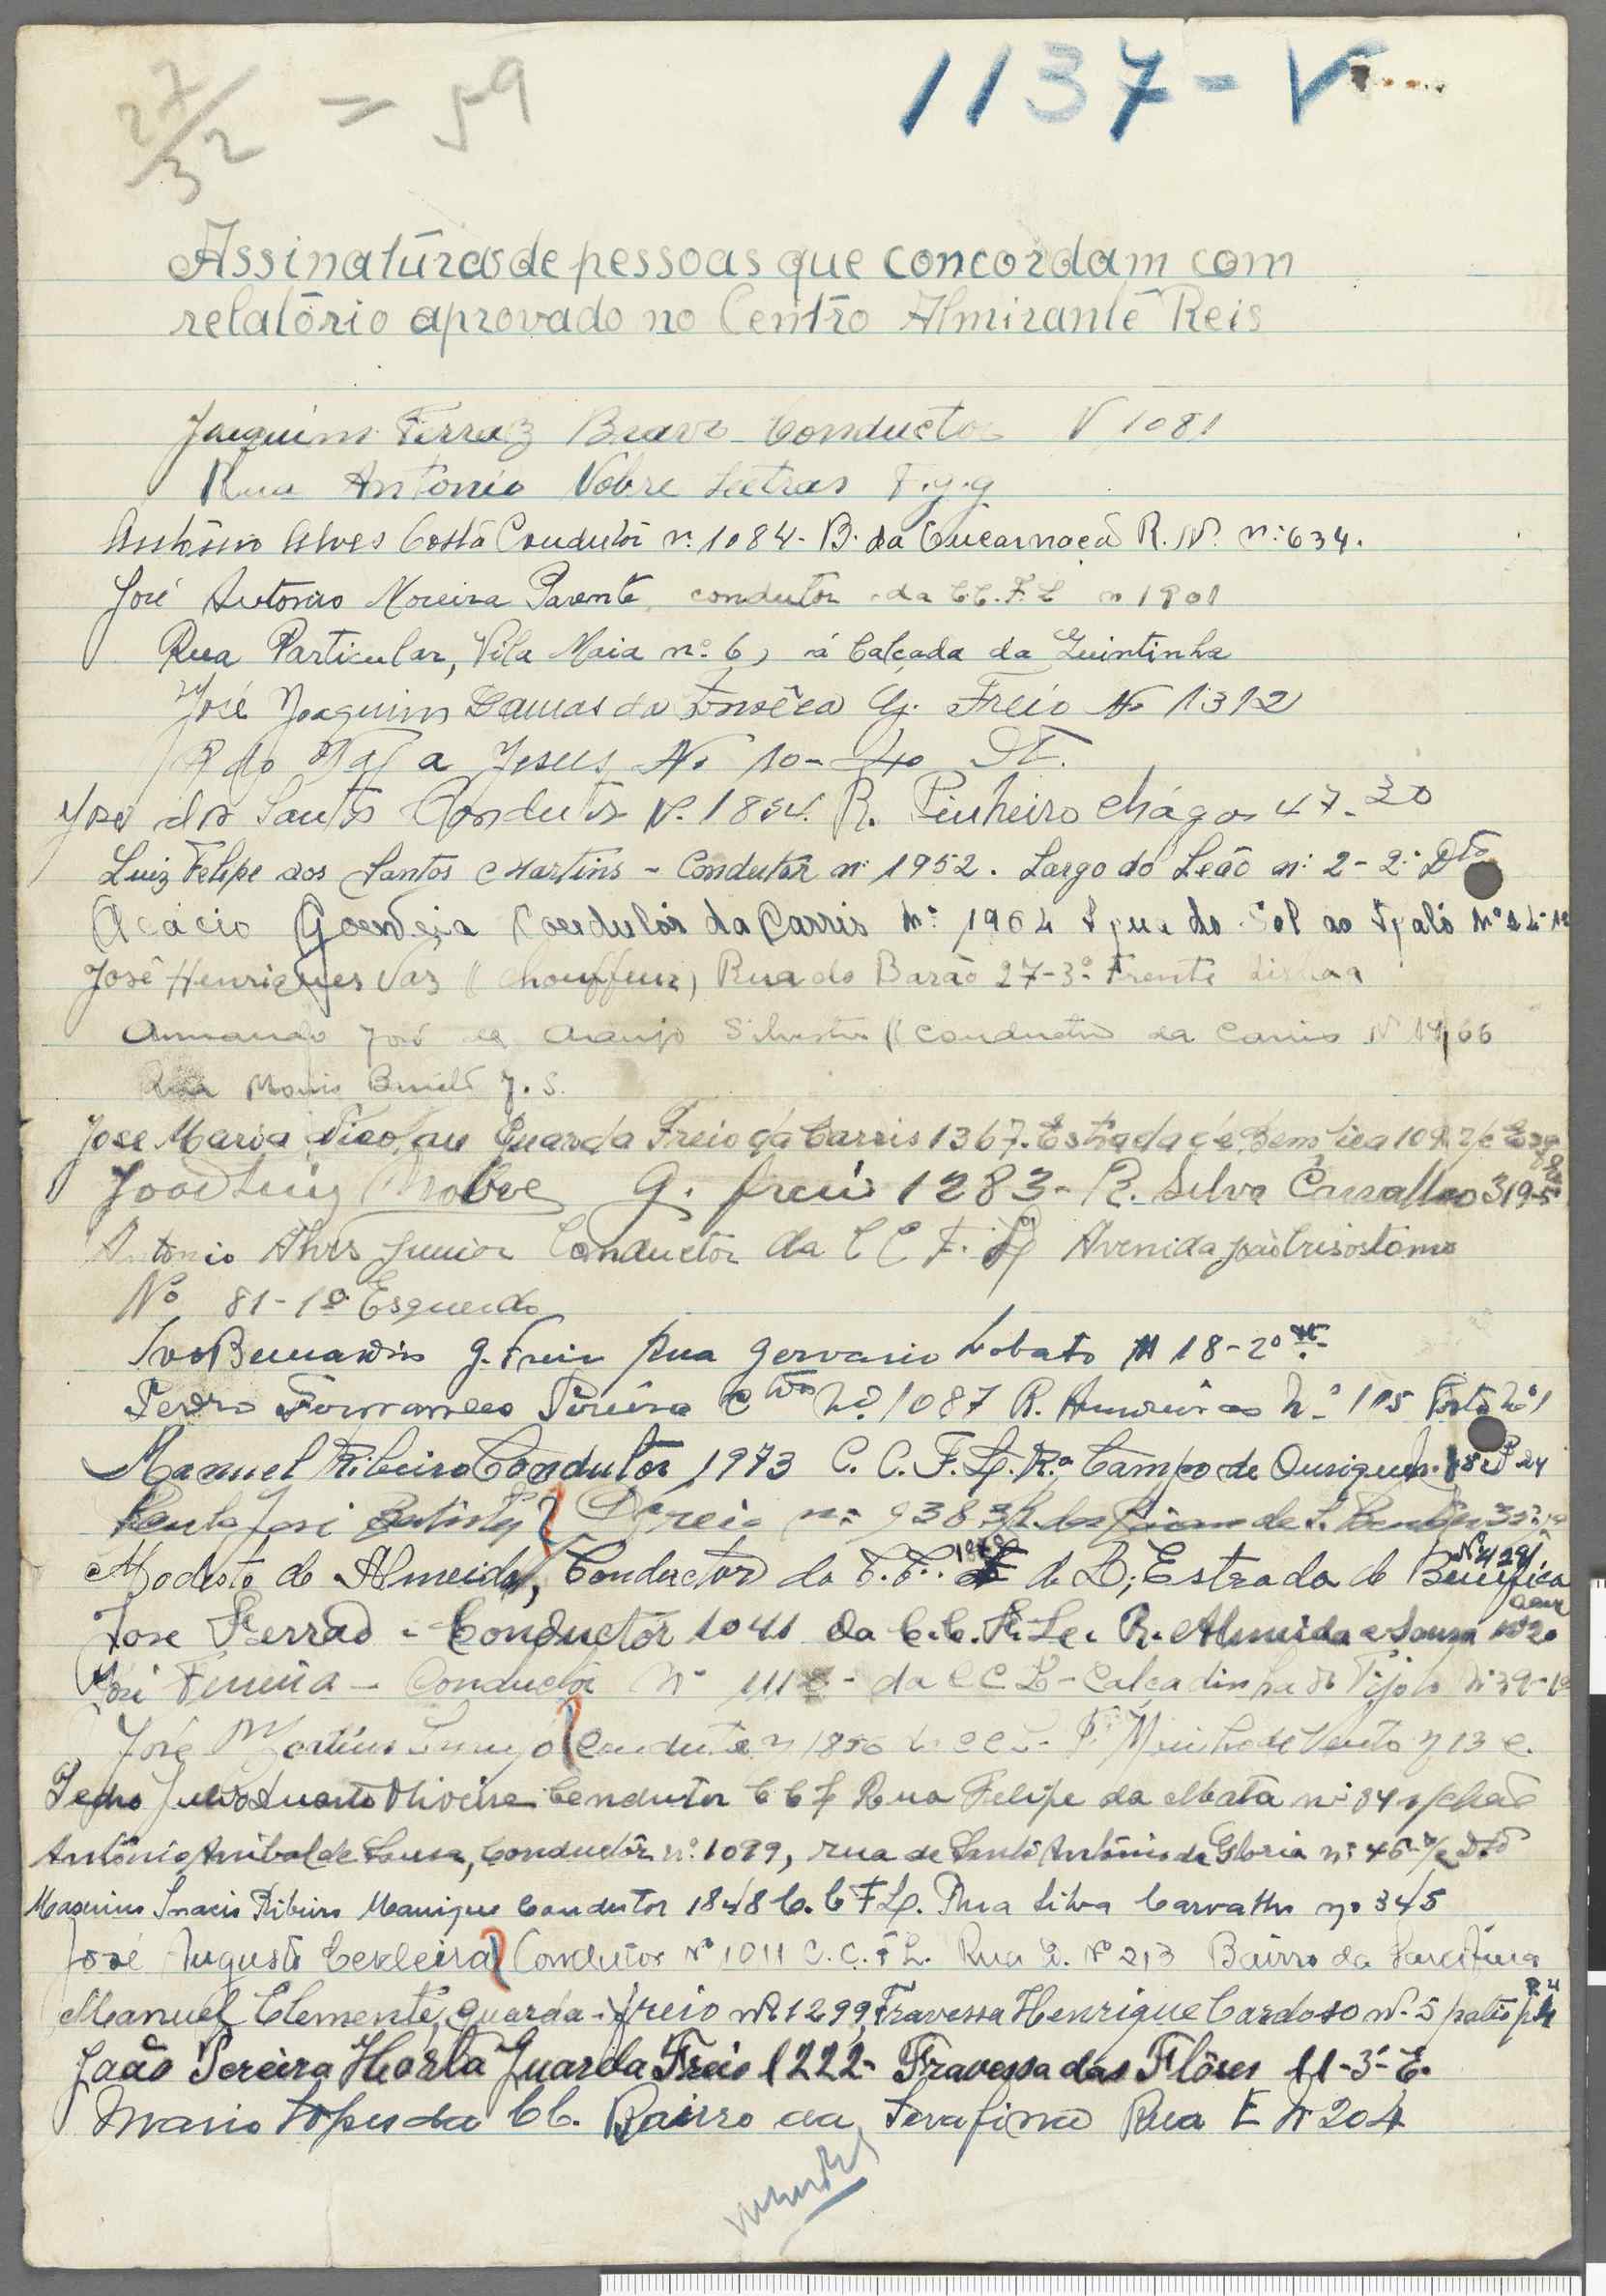 27/32 = 59
1137 - V
Assinatūras de pessoas que concordam com
relatōrio aprovado no Centrō Almirantē Reis
Joaquim Ferraz Bravo Conductor Nº 1081
Rua Antonio Nobre Letras F.g.g
António Alves Costa Condutôr nº 1084 - B. da Encarnaçã R. Nº nº 634.
José Antonio Moreira Parente, condutor da CC.F.L nº 1901
Rua Particular, Vila Maia nº 6, á Calçada da Quintinha
José Joaquim Damas da Fonsêca G. Freio Nº 1312
R do a Jesus Nº 10 - 4º DT.
José dos Santos Condutor Nº 1854. R. Pinheiro Chágas 47-3º
Luiz Felipe dos Santos Martins - Condutôr nº 1952. Largo do Leão nº 2 - 2º Dto
Acácio Condutôr da Carris Nº 1904 do Sol ao Nº
José Henriques Vaz (Chouffeur) Rua do Barão 27-3º Frente Lisboa
Armando José de Araujo Silvestre (Conductor da Carris Nº 1966
Rua
José Maria Nicolau Guarda Freio da Carris 1367. Estrada de Bemfica 109 r/c Esq
João Luiz G. freio 1283 - R. Silva Carvalho 319-5º
Antonio Alves Junior Conductor da C C F. L Avenida João Crisostomo
Nº 81-1º Esquerdo
Ivo Bernardino g. Freio Rua Gervasio Lobato Nº 18-2º
Pedro Fernandes Pereira Nº 1087 R. Amoreiras Nº 105 Porta Nº 1
Manuel Ribeiro Condutôr 1973 C. C. F. L. R.ª Campo de Ourique
José Batista Freio nº 938
Modesto de Almeida, Conductor da C.C. F de L; Estrada de Bemfica Nº 429
José Serrão - Conductor 1041 da C.C.F.L. R. Almeida e Sousa nº 20
José Ferreira - Conductor Nº da C C L - Calçadinha do Tijolo Nº 39-1º
José Martins Condutor nº 1850 Moinho de Vento nº 13 c.
Pedro Julio Duarte Oliveira Condutor C C F Rua Felipe da Mata nº 84 r/chão
António Anibal de Sousa, Conductôr nº 1099, rua de Santo António da Gloria nº 46 r/c Dtº
Maximino Inacio Ribeiro Manique Condutor 1848 C. C F L. Rua Silva Carvalho nº 345
José Augusto Condutor Nº 1011 C. C. F L. Rua D. Nº 213 Bairro da Sarafina
Manuel Clemente, guarda-freio nº 1299, Travessa Henrique Cardoso nº 5 patio
João Pereira Horta Guarda Freio 1222 - Travessa das Flôres 11-3º-E.
Mario Lopes da CC. Bairro da Serafina Rua E Nº 204